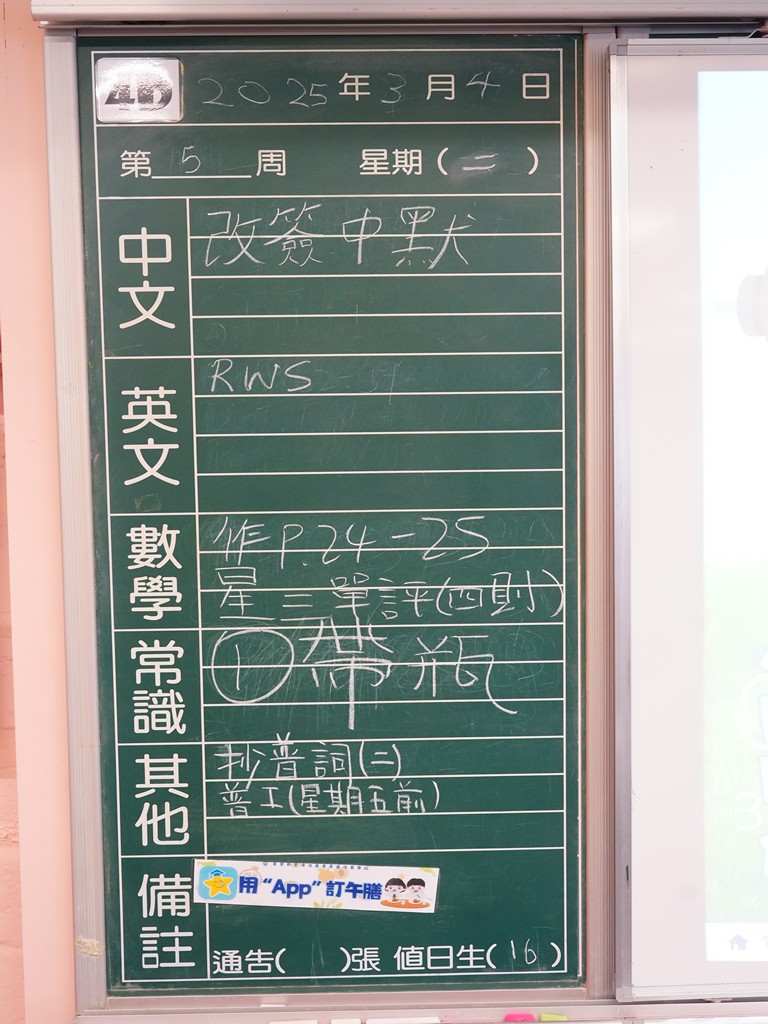 4B 2025年3月4日
第 5 周 星期(二)
中文
改簽中默
英文
RWS
數學
作P.24-25
星三單評(四則)
常識
①帶瓶
其他
抄普詞(二)
普工(星期五前)
備註
用“App”訂午膳
通告( )張 值日生(16)